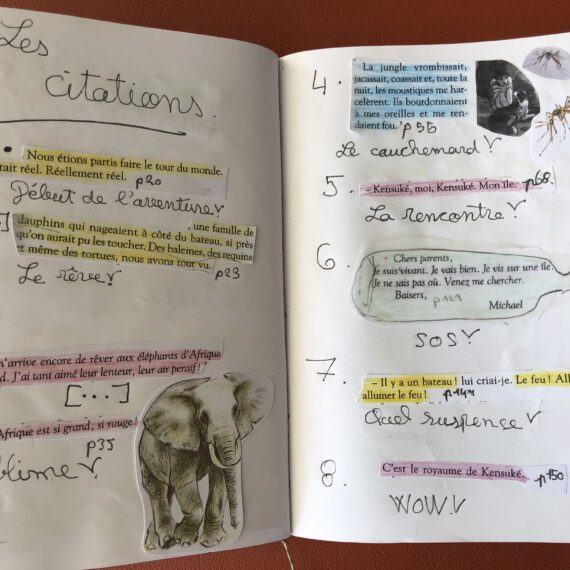 Les
citations.
Nous étions partis faire le tour du monde.
tait réel. Réellement réel. p20
Début de l'aventure!
] dauphins qui nageaient à côté du bateau, si près
, une famille de
qu'on aurait pu les toucher. Des baleines, des requins
et même des tortues, nous avons tout vu. p23
Le rêve!
n'arrive encore de rêver aux éléphants d'Afrique
d. J'ai tant aimé leur lenteur, leur air pensif!
[...]
Afrique est si grand, si rouge
p35
blime
4. La jungle vrombissait,
jacassait, coassait et, toute la
nuit, les moustiques me har-
celèrent. Ils bourdonnaient
à mes oreilles et me ren-
daient fou. p55
Le cauchemard
5. – Kensuké, moi, Kensuké. Mon île. p68
La rencontre
6. Chers parents,
Je suis vivant. Je vais bien. Je vis sur une île.
Je ne sais pas où. Venez me chercher.
Baisers, p121
Michael
SOS
7. – Il y a un bateau! lui criai-je. Le feu! All
allumer le feu! p144
Quel suspence
8. C'est le royaume de Kensuké. p150
WOW!